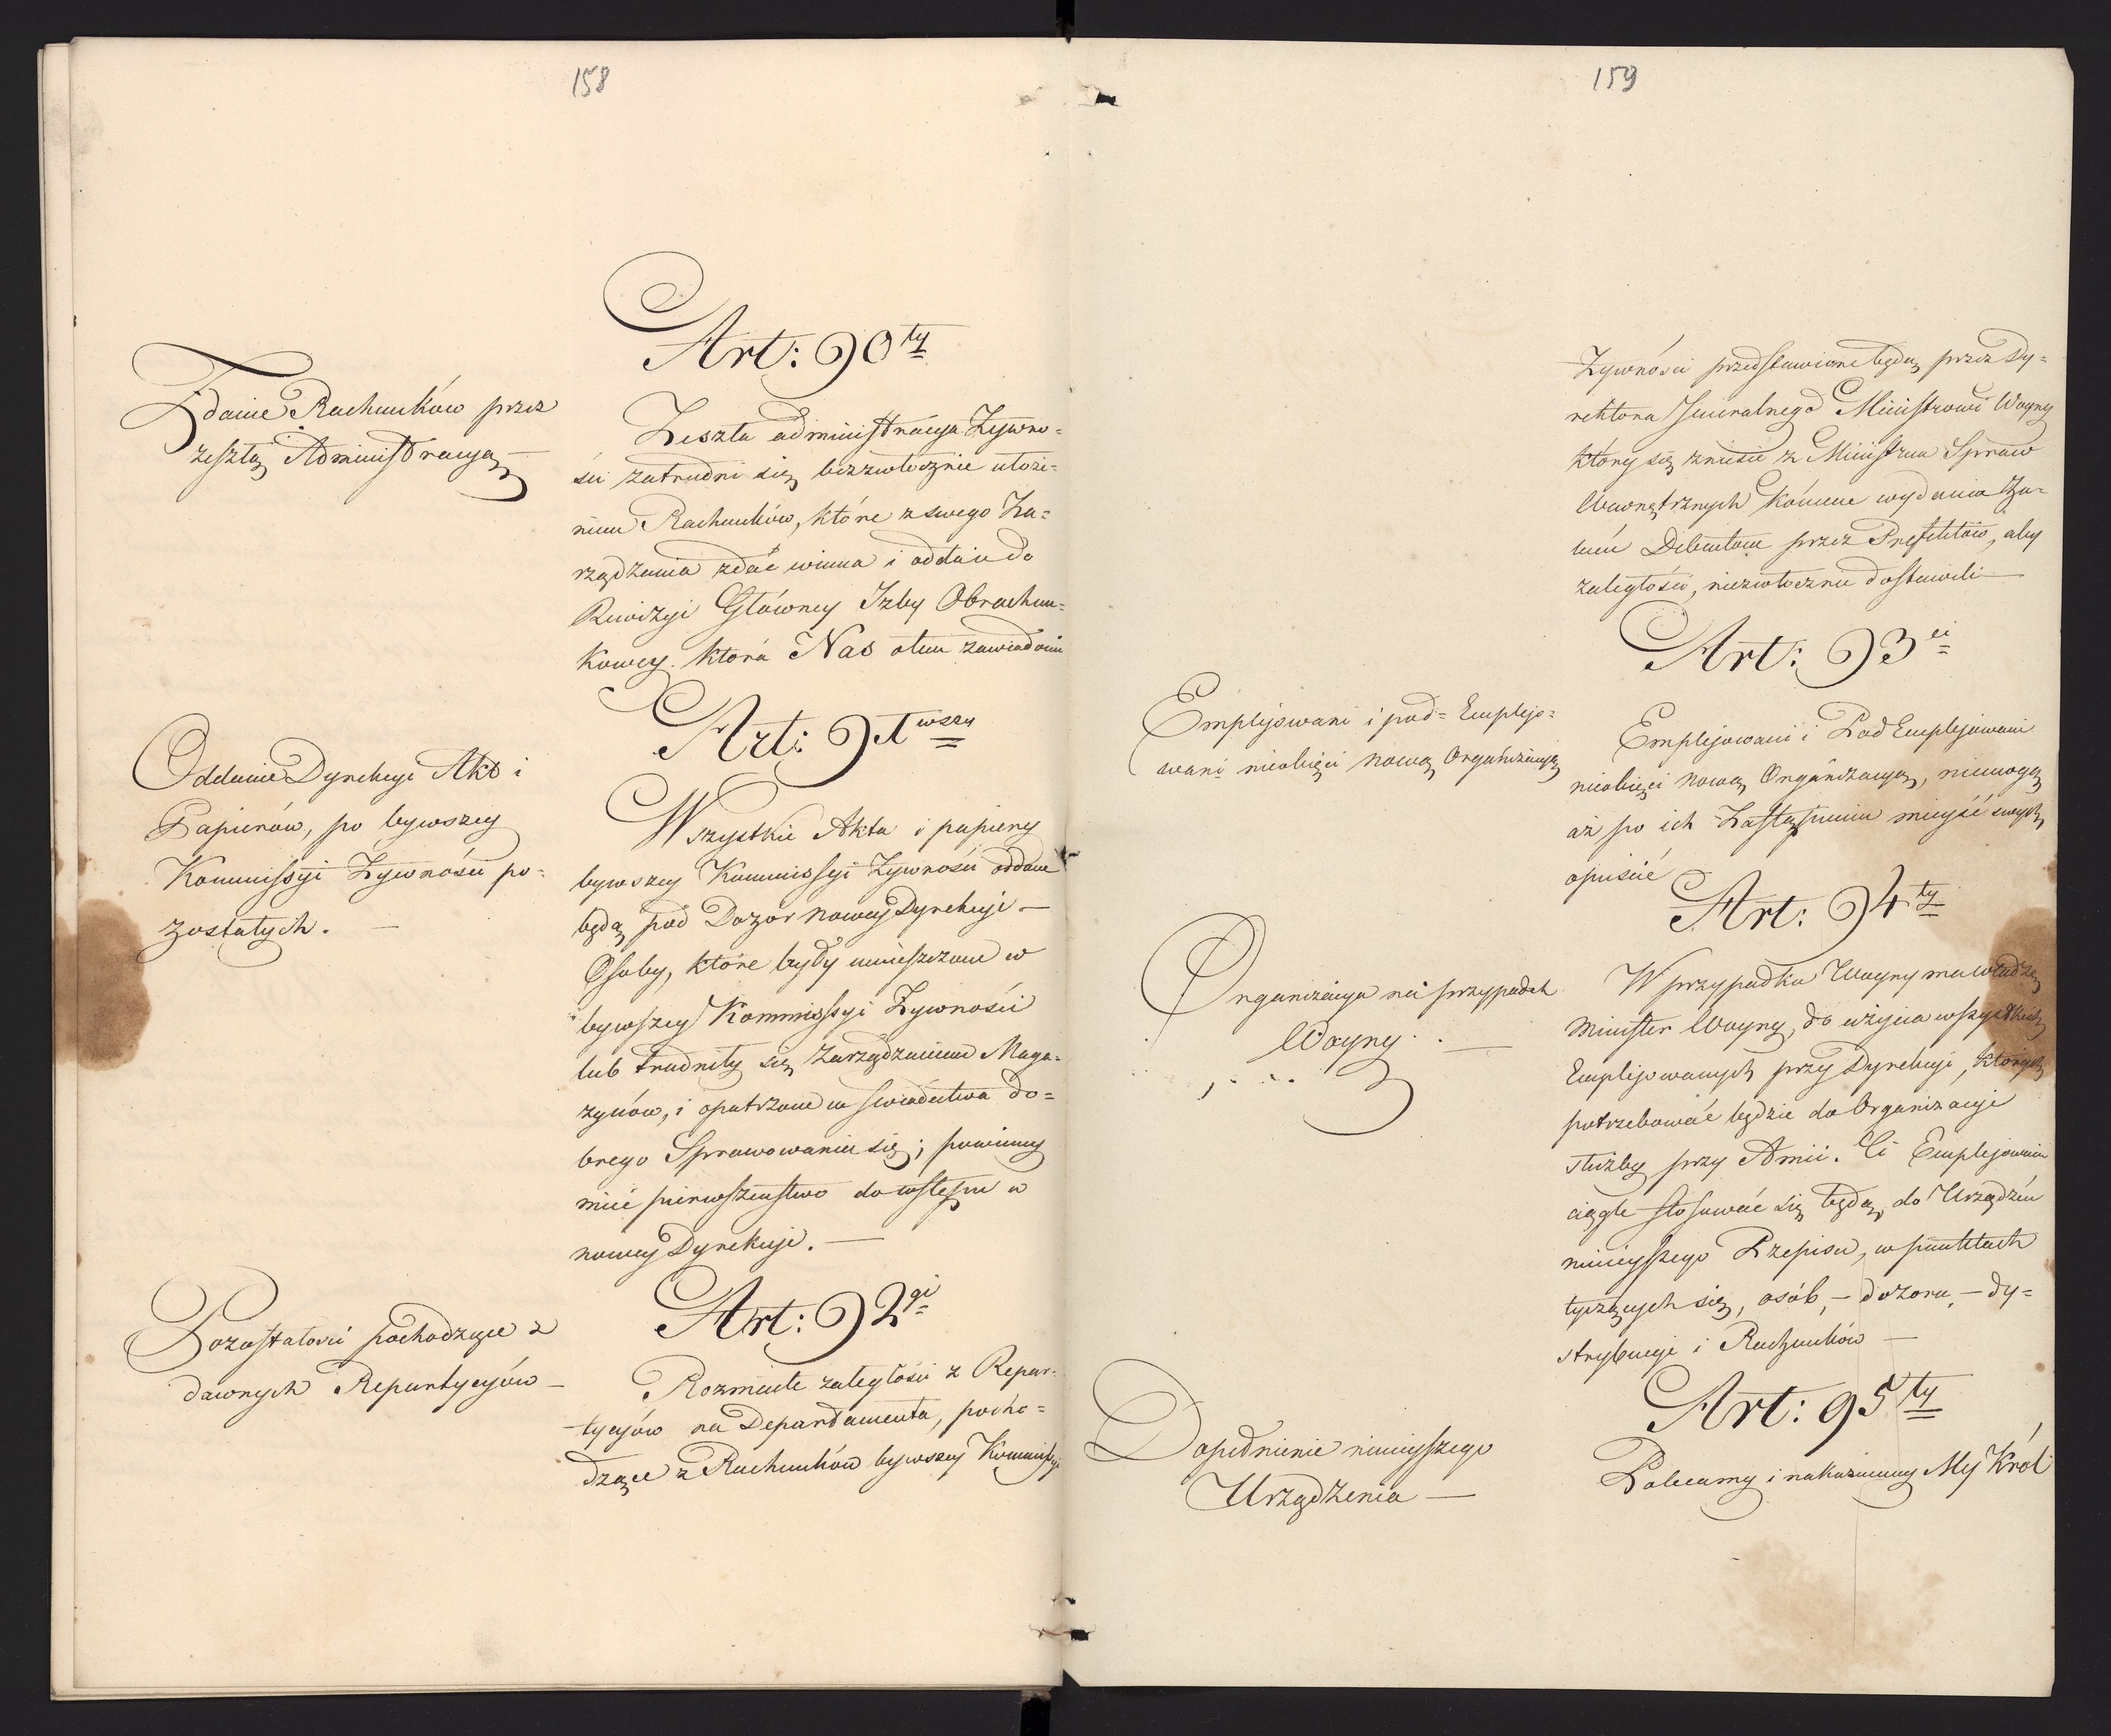 158
Art: 90ty
Zdanie Rachunków przez
zesztą Administracyą —
Zeszła administracya Żywno-
ści zatrudni się bezzwłocznie ułoże-
niem Rachunków, które z swego Za-
rządzenia zdać winna i oddaie do
Rewizyi Główney Izby Obrachun-
kowey. która Nas otem zawiadomi
Art: 91wszy
Oddanie Dyrekcyi Akt i
Papierów, po bywszey
Kommissyi Żywności po-
zostałych. —
Wszystkie Akta i papiery
bywszey Kommissyi Żywności oddane
będą pod Dozor nowey Dyrekcyi —
Osoby, które były umieszczone w
bywszey Kommissyi Żywności
lub trudniły się Zarządzeniem Maga-
zynów, i opatrzone w swiadectwa do-
brego Sprawowania się; powinny
mieć pierwszenstwo do wstępu w
nowey Dyrekcyi. —
Art: 92gi
Pozostałości pochodzące z
dawnych Repartycyów —
Rozmaite zaległości z Repar-
tycyów na Departamenta, pocho-
dzące z Rachunków bywszey Kommissyi
159
Żywności przedstawione będą przez Dy-
rektora Jeneralnego Ministrowi Woyny
który się zniesie z Ministrem Spraw
Wewnętrznych końcem wydania
Debentom przez Prefektów, aby
zaległości, niezwłocznie dostawili —
Art: 93ci
Emplejowani i pod-Emplejo-
wani nieobięci nową Organizacyą
Emplejowani i Pod Emplejowani
nieobięci nową Organizacyą, niemogą
aż po ich Zastąpieniu mieysc swych
opuścić
Art: 94ty
Organizacya na przypadek
Woyny. —
W przypadku Woyny ma władzę
Minister Woyny, do użycia wszystkich
Emplejowanych przy Dyrekcyi, których
potrzebować będzie do Organizacyi
służby przy Armii. Ci Emplejowani
ciągle stosować się będą, do Urządzeń
ninieyszego Przepisu, w punktach
tyczących się, osób, — dozoru, — dy-
strybucyi i Rachunków —
Art: 95ty
Dopełnienie ninieyszego
Urządzenia —
Polecamy i nakazuiemy My Król